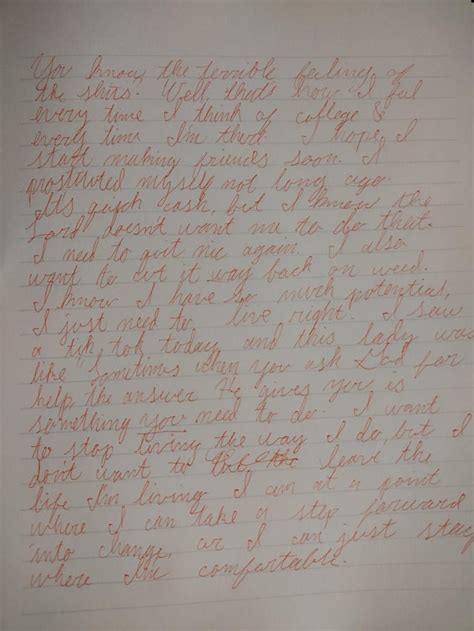 You know the terrible feeling of
the shits. Well, thats how I feel
every time I think of college &
every time I'm there. I hope I
start making friends soon. I
prostituted myself not long ago.
Its quick cash, but I know the
Lord doesn't want me to do that.
I need to quit nic again. I also
want to cut it way back on weed.
I know I have so much potential,
I just need to live right. I saw
a tik tok today and this lady was
like "Sometimes when you ask God for
help the answer He gives you is
something you need to do. I want
to stop living the way I do, but I
dont want to leave the
life I'm living. I am at a point
where I can take a step forward
into change, or I can just stay
where I'm comfortable.